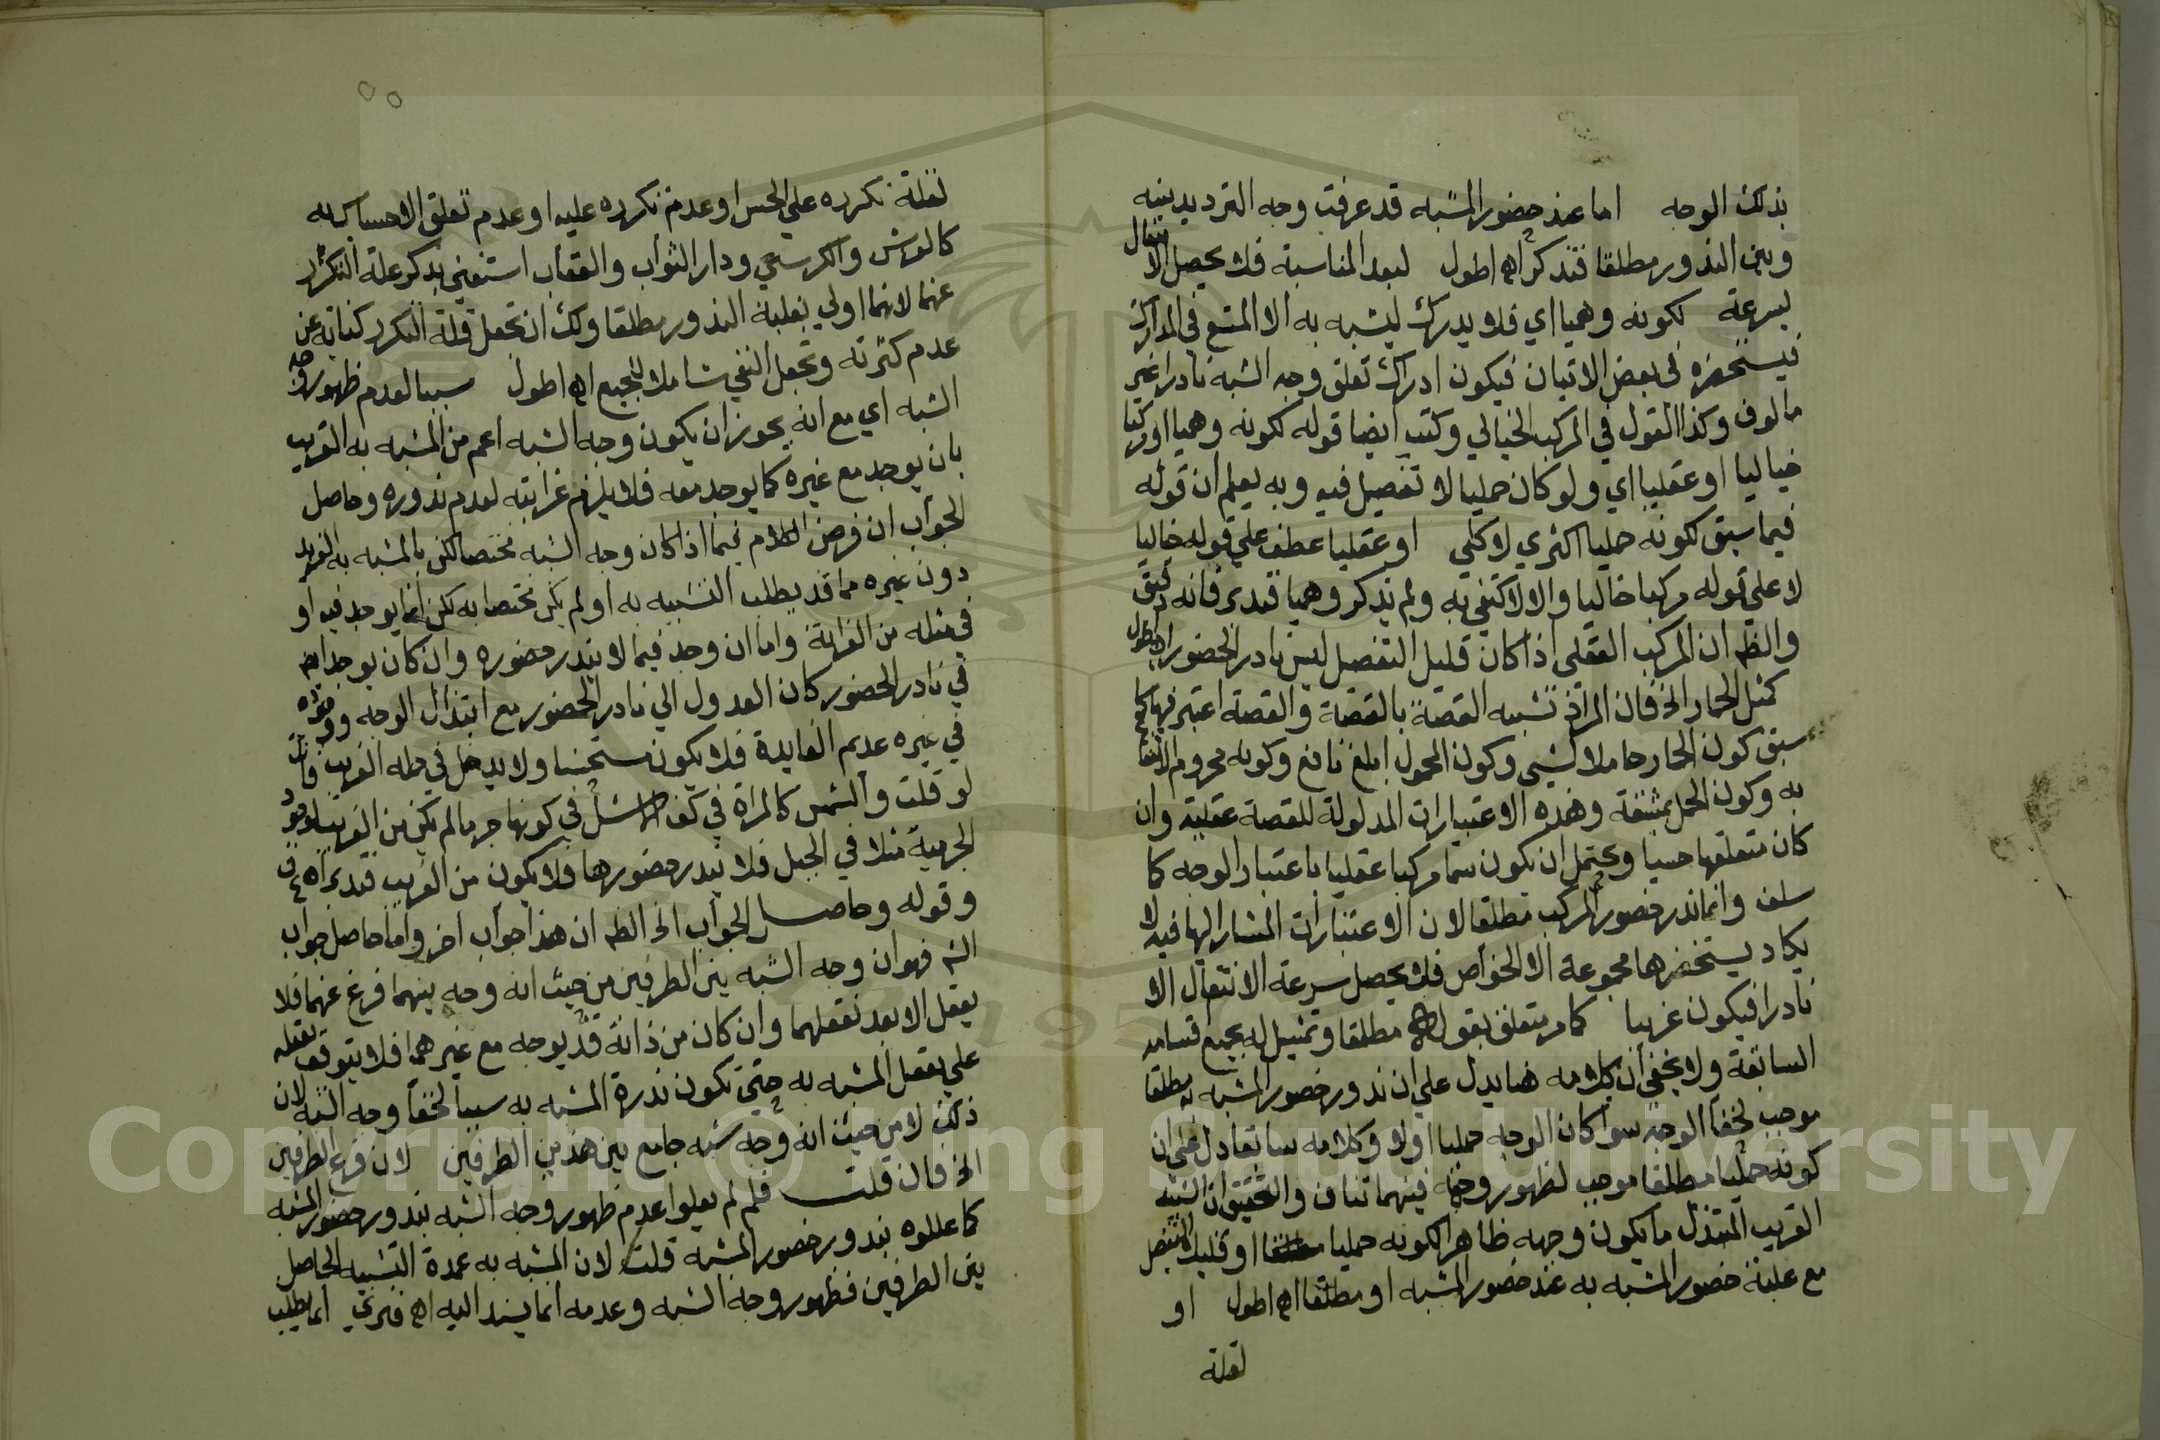 بذلك الوجه اما عند حضور المشبه قد عرفت وجه الترديد بينه
وبين الندور مطلقا فتذكر اه اطول لبعد المناسبة فلا يحصل الانتقال
بسرعة لكونه وهميا اي فلا يدرك ليشبه به الا المتسع في المدارك
فيستحضره في بعض الاتيان فيكون ادراك تعلق وجه الشبه نادرا غير
مالوف وكذا القول في المركب الخيالي وكتب ايضا قوله لكونه وهميا او مركبا
خياليا او عقليا اي ولو كان جمليا لا تفصيل فيه وبه يعلم ان قوله
فيما سبق لكونه جمليا اكثري لا كلي او عقليا عطف علي قوله خياليا
لا علي قوله مركبا خياليا والا لاكتفي به ولم يذكر وهميا فتدبر فانه دقيق
والظ ان المركب العقلي اذا كان قليل التفصيل ليس نادر الحضور اه اطول
كمثل الحمار الخ فان المراد تشبيه القصة بالقصة والقصة اعتبر فيها كما
سبق كون الحمار حاملا لشي وكون المحمول ابلغ نافع وكونه محروم الانتفاع
به وكون الحمل بمشقة وهذه الاعتبارات المدلولة للقصة عقلية وان
كان متعلقها حسيا ويحتمل ان يكون سما مركبا عقليا باعتبار الوجه كما
سلف وانما ندر حضور المركب مطلقا لان الاعتبارات المشار اليها فيه لا
يكاد يستحضرها مجموعة الا الخواص فلا يحصل سرعة الانتقال الا
نادرا فيكون غريبا كما مر متعلق بقوله مطلقا وتمثيل له بجميع اقسامه
السابقة ولا يخفي ان كلامه هنا يدل علي ان ندور حضور المشبه به مطلقا
موجب لخفا الوجه سوا كان الوجه جمليا اولا وكلامه سابقا دل علي ان
كونه جمليا مطلقا موجب لظهور وجهه فبينهما تناف والتحقيق ان التشبيه
القريب المبتذل ما يكون وجهه ظاهرا لكونه جمليا او قليل التفصيل
مع غلبة حضور المشبه به عند حضور المشبه او مطلقا اه اطول او
لقلة
لقلة تكرره علي الحس او عدم تكرره عليه او عدم تعلق الاحساس به
كالعرش والكرسي ودار الثواب والعقاب استغني بذكر علة التكرر
عنهما لانهما اولي بغلبة الندور مطلقا ولك ان تجعل قلة التكرر كناية عن
عدم كثرته وتجعل النفي شاملا للجميع اه اطول سببا لعدم ظهور وجه
الشبه اي مع انه يجوز ان يكون وجه الشبه اعم من المشبه به القريب
بان يوجد مع غيره كما يوجد معه فلا يلزم غرابته لعدم ندوره وحاصل
الجواب ان فرض الكلام فيما اذا كان وجه الشبه مختصا لكن بالمشبه به الغريب
دون غيره مما قد يطلب التشبيه به او لم يكن مختصا به لكن انما يوجد فيه او
في مثله من الغرابة واما ان وجد فيما لا يندر حضوره وان كان يوجد ايضا
في نادر الحضور كان العدول الي نادر الحضور مع ابتذال الوجه ووجوده
في غيره عديم الفايدة فلا يكون مستحسنا ولا يدخل في جملة الغريب فانك
لو قلت والشمس كالمراة في كف الاشل في كونها جرما لم يكن من الغريب لوجود
الجرمية مثلا في الجبل فلا يندر حضورها فلا يكون من الغريب فتدبر اه ع ق
وقوله وحاصل الجواب الخ الظ ان هذا جواب اخر واما حاصل جواب
الش فهو ان وجه الشبه بين الطرفين من حيث انه وجه بينهما فرع عنهما فلا
يعقل الا بعد تعقلهما وان كان من ذاته قد يوجد مع غيرهما فلا يتوقف تعقله
علي تعقل المشبه به حتي تكون ندرة المشبه به سببا لخفا وجه الشبه لان
ذلك لا من حيث انه وجه شبه جامع بين هذين الطرفين لان فرع الطرفين
الخ فان قلت فلم لم يعللوا عدم ظهور وجه الشبه بندور حضور المشبه
كما عللوه بندور حضور المشبه قلت لان المشبه به عمدة التشبيه الحاصل
بين الطرفين فظهور وجه الشبه وعدمه انما يسند اليه اه فنري انما يطلب